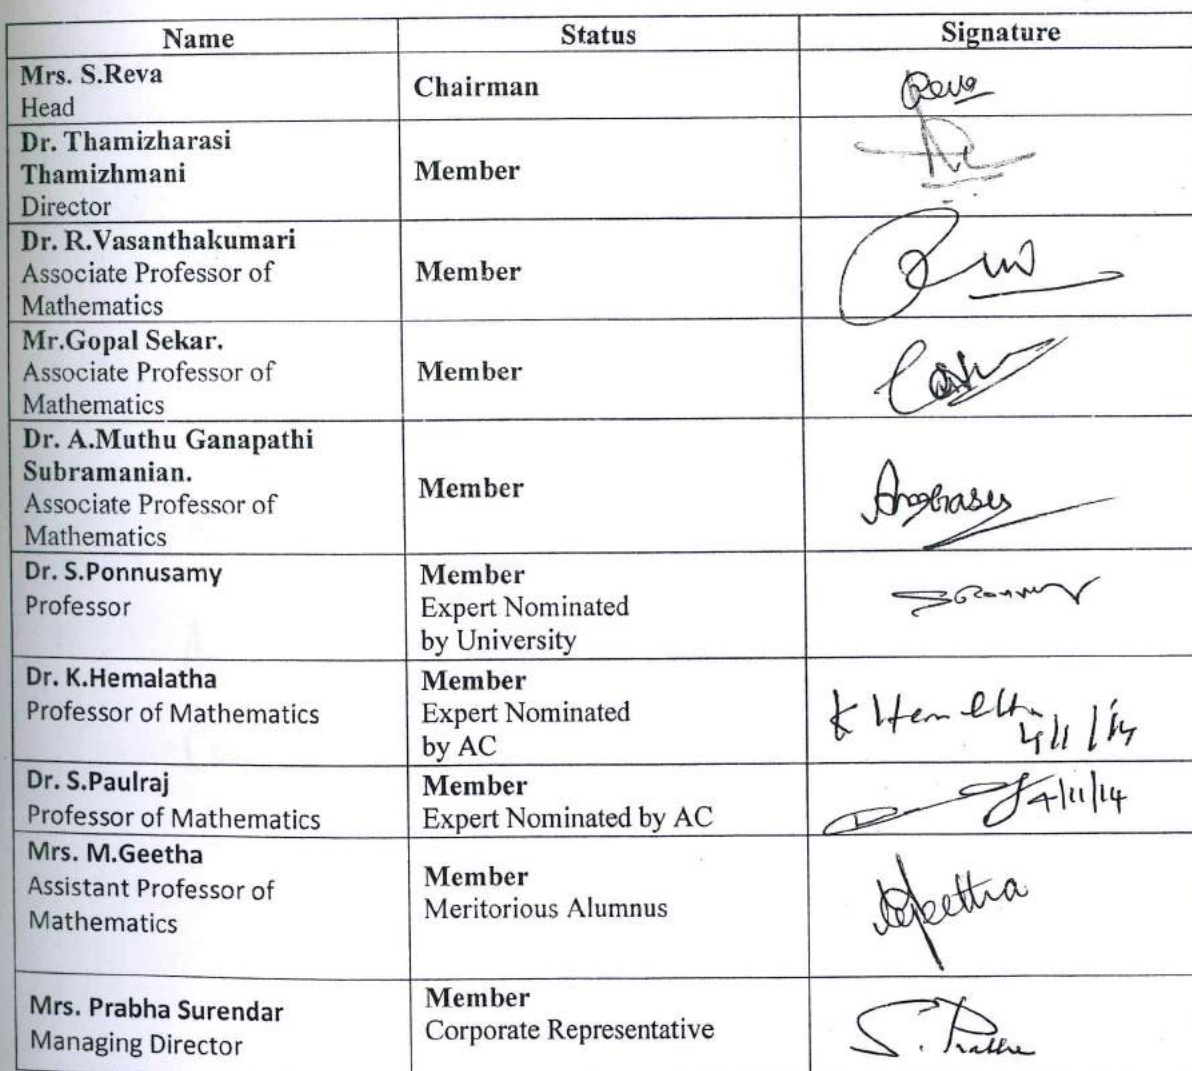 Name Status Signature
Mrs. S.Reva
Head
Chairman
Reva
Dr. Thamizharasi
Thamizhmani
Director
Member
Dr. R.Vasanthakumari
Associate Professor of
Mathematics
Member
Mr.Gopal Sekar.
Associate Professor of
Mathematics
Member
Dr. A.Muthu Ganapathi
Subramanian.
Associate Professor of
Mathematics
Member
Dr. S.Ponnusamy
Professor
Member
Expert Nominated
by University
Dr. K.Hemalatha
Professor of Mathematics
Member
Expert Nominated
by AC
4/11/14
Dr. S.Paulraj
Professor of Mathematics
Member
Expert Nominated by AC
4/11/14
Mrs. M.Geetha
Assistant Professor of
Mathematics
Member
Meritorious Alumnus
Mrs. Prabha Surendar
Managing Director
Member
Corporate Representative